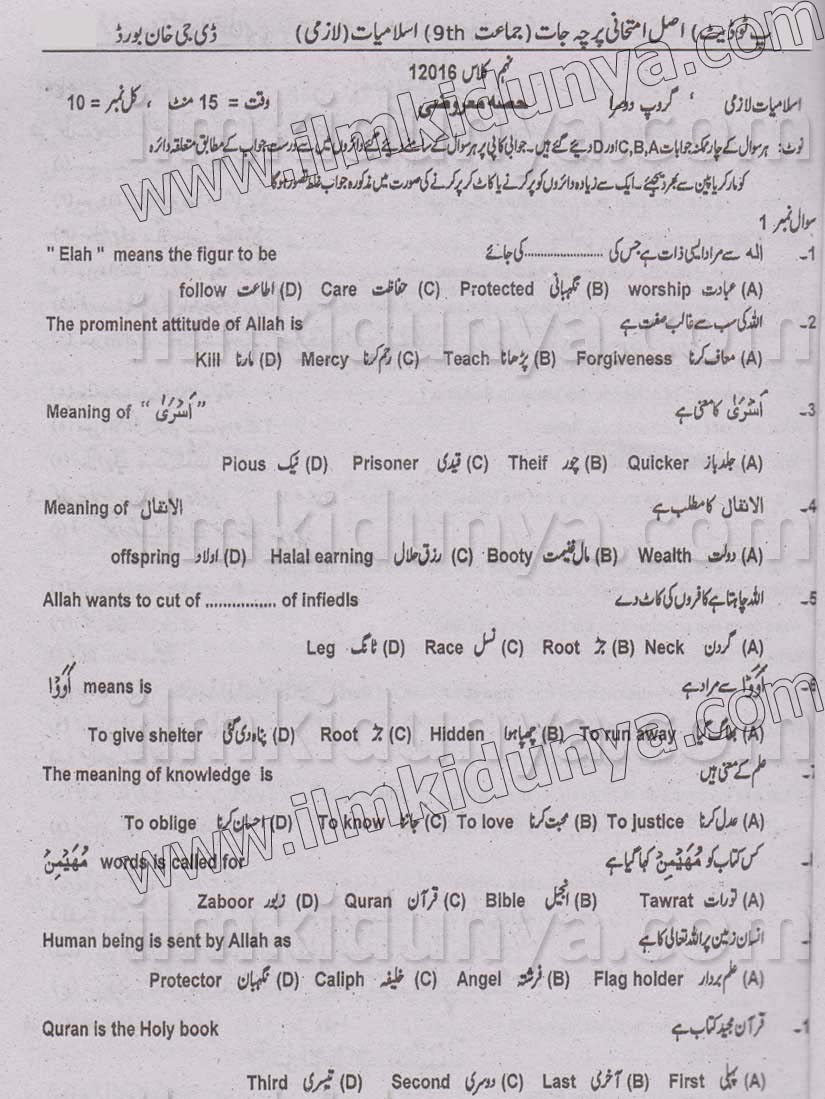 (اپ ٹو ڈیٹ) اصل امتحانی پرچہ جات (جماعت 9th) اسلامیات (لازمی) ڈی جی خان بورڈ
نہم کلاس 12016
اسلامیات لازمی ، گروپ دوسرا حصہ معروضی وقت = 15 منٹ ، کل نمبر = 10
نوٹ: ہر سوال کے چار ممکنہ جوابات C,B,A اور D دیئے گئے ہیں۔ جوابی کاپی پر ہر سوال کے سامنے دیئے گئے دائروں میں سے درست جواب کے مطابق متعلقہ دائرہ
کو مارکر یا پین سے بھر دیجئیے۔ ایک سے زیادہ دائروں کو پر کرنے یا کاٹ کر پر کرنے کی صورت میں مذکورہ جواب غلط تصور ہو گا
سوال نمبر 1
1۔ الہ سے مراد ایسی ذات ہے جس کی ........................ کی جائے " Elah " means the figur to be
(A) عبادت worship (B) نگہبانی Protected (C) حفاظت Care (D) اطاعت follow
2۔ اللہ کی سب سے غالب صفت ہے The prominent attitude of Allah is
(A) معاف کرنا Forgiveness (B) پڑھانا Teach (C) رحم کرنا Mercy (D) مارنا Kill
3۔ اَسْرٰی کا معنی ہے Meaning of “ اَسْرٰی ”
(A) جلد باز Quicker (B) چور Theif (C) قیدی Prisoner (D) نیک Pious
4۔ الانفال کا مطلب ہے Meaning of الانفال
(A) دولت Wealth (B) مال غنیمت Booty (C) رزق حلال Halal earning (D) اولاد offspring
5۔ اللہ چاہتا ہے کافروں کی کاٹ دے Allah wants to cut of ................ of infiedls
(A) گردن Neck (B) جڑ Root (C) نسل Race (D) ٹانگ Leg
6۔ اٰوَوْا سے مراد ہے اٰوَوْا means is
(A) بھاگ گیا To run away (B) چھپا ہوا Hidden (C) جڑ Root (D) پناہ دی گئی To give shelter
علم کے معنی ہیں The meaning of knowledge is
(A) عدل کرنا To justice (B) محبت کرنا To love (C) جاننا To know (D) احسان کرنا To oblige
کس کتاب کو مُهَيْمِنْ کہا گیا ہے مُهَيْمِنْ words is called for
(A) تورات Tawrat (B) انجیل Bible (C) قرآن Quran (D) زبور Zaboor
انسان زمین پر اللہ تعالی کا ہے Human being is sent by Allah as
(A) علم بردار Flag holder (B) فرشتہ Angel (C) خلیفہ Caliph (D) نگہبان Protector
قرآن مجید کتاب ہے Quran is the Holy book
(A) پہلی First (B) آخری Last (C) دوسری Second (D) تیسری Third
www.ilmkidunya.com
ilmkidunya.com
ilmkidunya.com
ilmkidunya.com
www.ilmkidunya.com
ilmkidunya.com